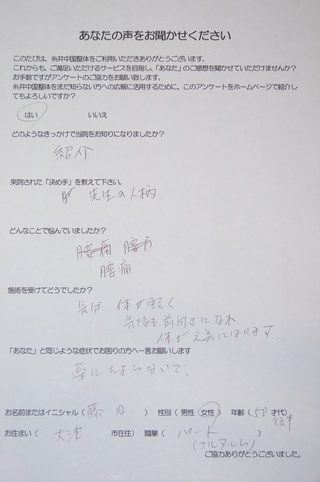 あなたの声をお聞かせください
このたびは、糸井中国整体をご利用いただきありがとうございます。
これからも、ご満足いただけるサービスを目指し、「あなた」のご感想を聞かせていただけませんか?
お手数ですがアンケートのご協力をお願い致します。
糸井中国整体をまだ知らない方への広報に活用するために。このアンケートをホームページで紹介し
てもよろしいですか?
はい いいえ
どのようなきっかけで当院をお知りになりましたか?
紹介
来院された「決め手」を教えて下さい。
先生の人柄
どんなことで悩んでいましたか?
腰痛
施術を受けてどうでしたか?
気分 体が軽く
気持も前向きになれ
体が元気になります
「あなた」と同じような症状でお困りの方へ一言お願いします
薬にたよらないで、
お名前またはイニシャル( 藤 )性別(男性 女性)年齢(50才代)
お住まい( 大津 市在住) 職業( パート
(フルタイム)
ご協力ありがとうございました。